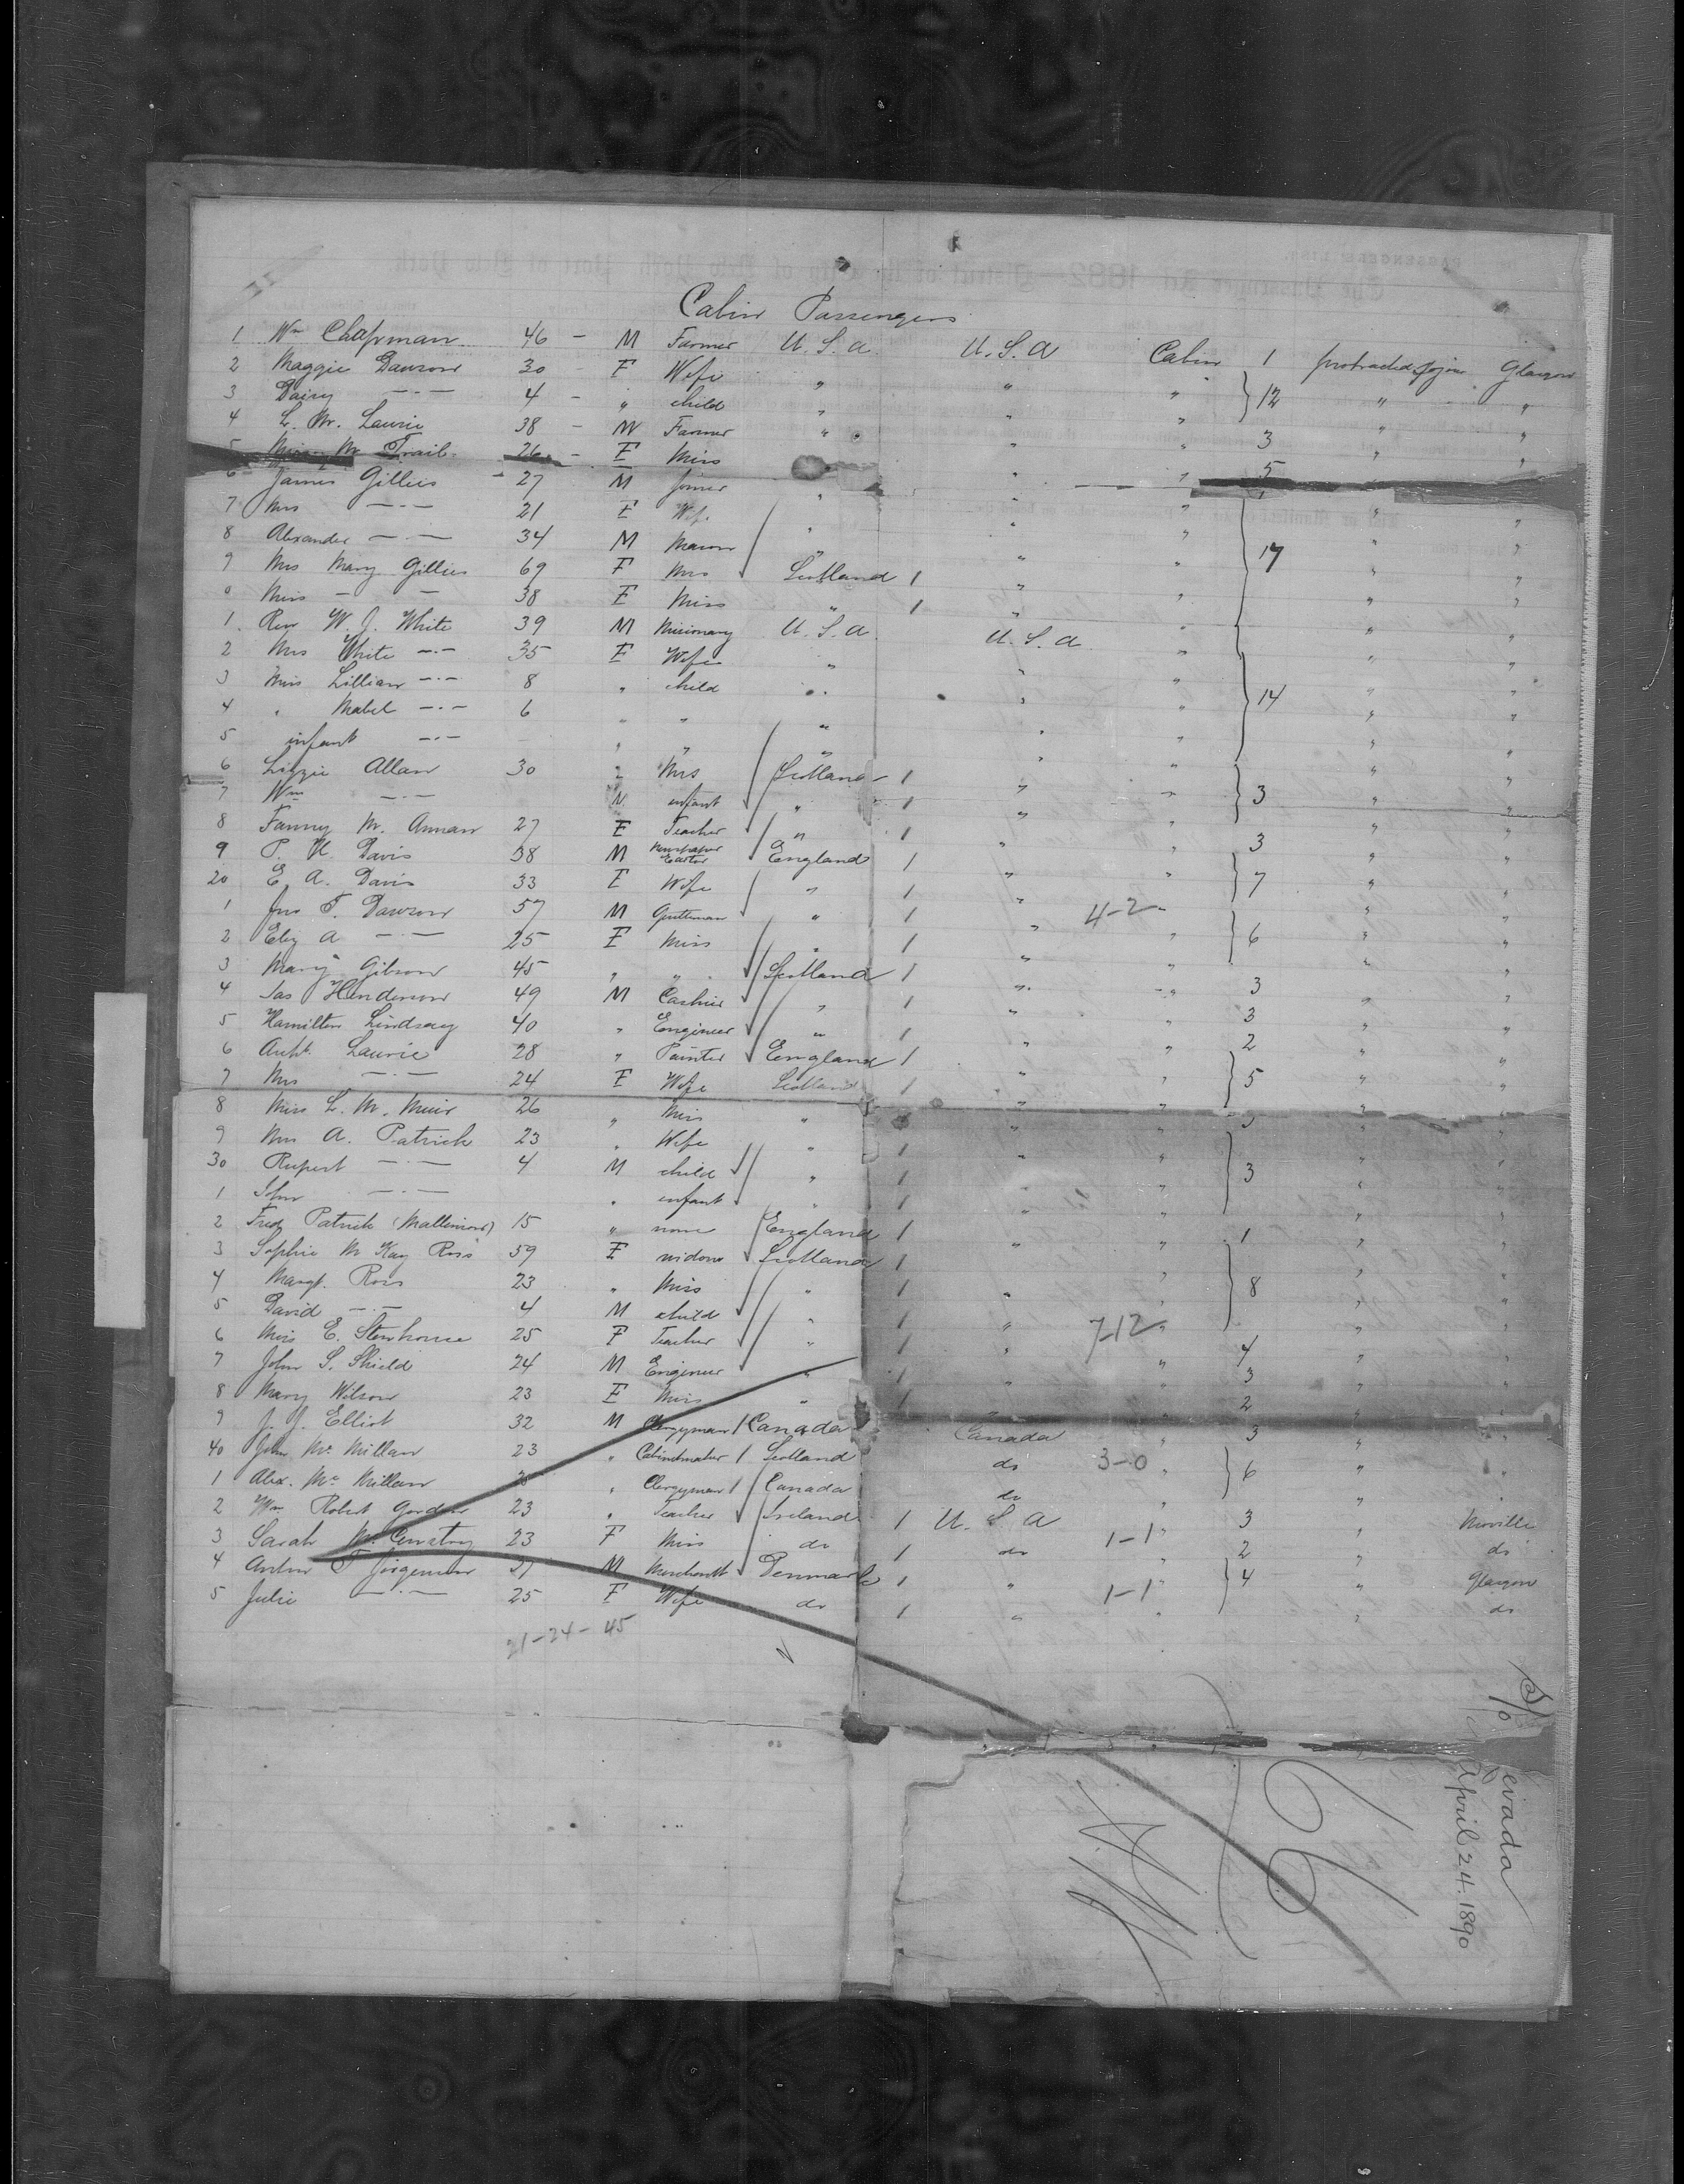 Cabin Passengers
1 Wm Chapman 46 - M Farmer U.S.A. U.S.A Cabin 1 protracted sojn Glasgow
2 Maggie Dawson 30 - F Wife " " " } 12 " "
3 Daisy -·- 4 - " child " " " " "
4 L. M. Laurie 38 - M Farmer " " " 3 " "
5 M. Trail 26 - F Miss " " 5
6 James Gillies - 27 M Joiner " " "
7 Mrs -·- 21 F Wife " " " " "
8 Alexander -·- 34 M Mason " " " } 17 " "
9 Mrs Mary Gillies 69 F Mrs Scotland 1 " " " "
0 Miss - - 38 F Miss " 1 " " " "
1 Rev W. J. White 39 M Missionary U.S.A. U.S.A " " "
2 Mrs White -·- 35 F Wife " " " " "
3 Miss Lillian -·- 8 " child " " " } 14 " "
4 " Mabel -·- 6 " " " " " " "
5 infant -·- " " " " " " "
6 Lizzie Allan 30 " Mrs Scotland 1 " " } 3 " "
7 Wm -·- M infant " 1 " " " "
8 Fanny M. Annan 27 F Teacher " 1 " " 3 " "
9 P. H. Davis 38 M Newspaper Editor England 1 " " } 7 " "
20 E. A. Davis 33 F Wife " 1 " " "
1 Jno T. Dawson 57 M Gentleman " 1 " 4-2 " } 6 " "
2 Eliz A -·- 25 F Miss " 1 " " " "
3 Mary Gibson 45 " " Scotland 1 " " 3 " "
4 Jas Henderson 49 M Cashier " 1 " " 3 " "
5 Hamilton Lindsay 40 " Engineer " 1 " " 2 " "
6 Laurie 28 " Painter England 1 " " } 5 " "
7 Mrs -·- 24 F Wife Scotland 1 " " " "
8 Miss L. M. Muir 26 " Miss " " " " "
9 Mrs A. Patrick 23 " Wife " 1 " " } 3 " "
30 Rupert -·- 4 M child " 1 " " " "
1 John -·- " infant " 1 " " " "
2 Fredk Patrick (Mallinson) 15 " none England 1 " " 1 " "
3 Sophia McKay Ross 59 F widow Scotland 1 " " } 8 " "
4 Margt. Ross 23 " Miss " 1 " " " "
5 David -·- 4 M child " 1 " 7-12 " " "
6 Miss E. Stenhouse 25 F Teacher " 1 " " 4 " "
7 John S. Shield 24 M Engineer " 1 " " 3 " "
8 Mary Wilson 23 F Miss " 1 " " 2 " "
9 J. J. Elliot 32 M Clergyman 1 Canada Canada " 3 " "
40 John McMillan 23 " Cabinetmaker 1 Scotland do 3-0 " } 6 " "
1 Alex. McMillan " Clergyman 1 Canada do " "
2 Wm Robert Gordon 23 " Teacher Ireland 1 U.S A " 3 " Moville
3 Sarah 23 F Miss do 1 do 1-1 " 2 " do
4 Anton F Jorgensen 27 M Merchandt Denmark 1 " 1-1 " } 4 " Glasgow
5 Julie -·- 25 F Wife do 1 " " " do
21-24-45
evada
April 24. 1890